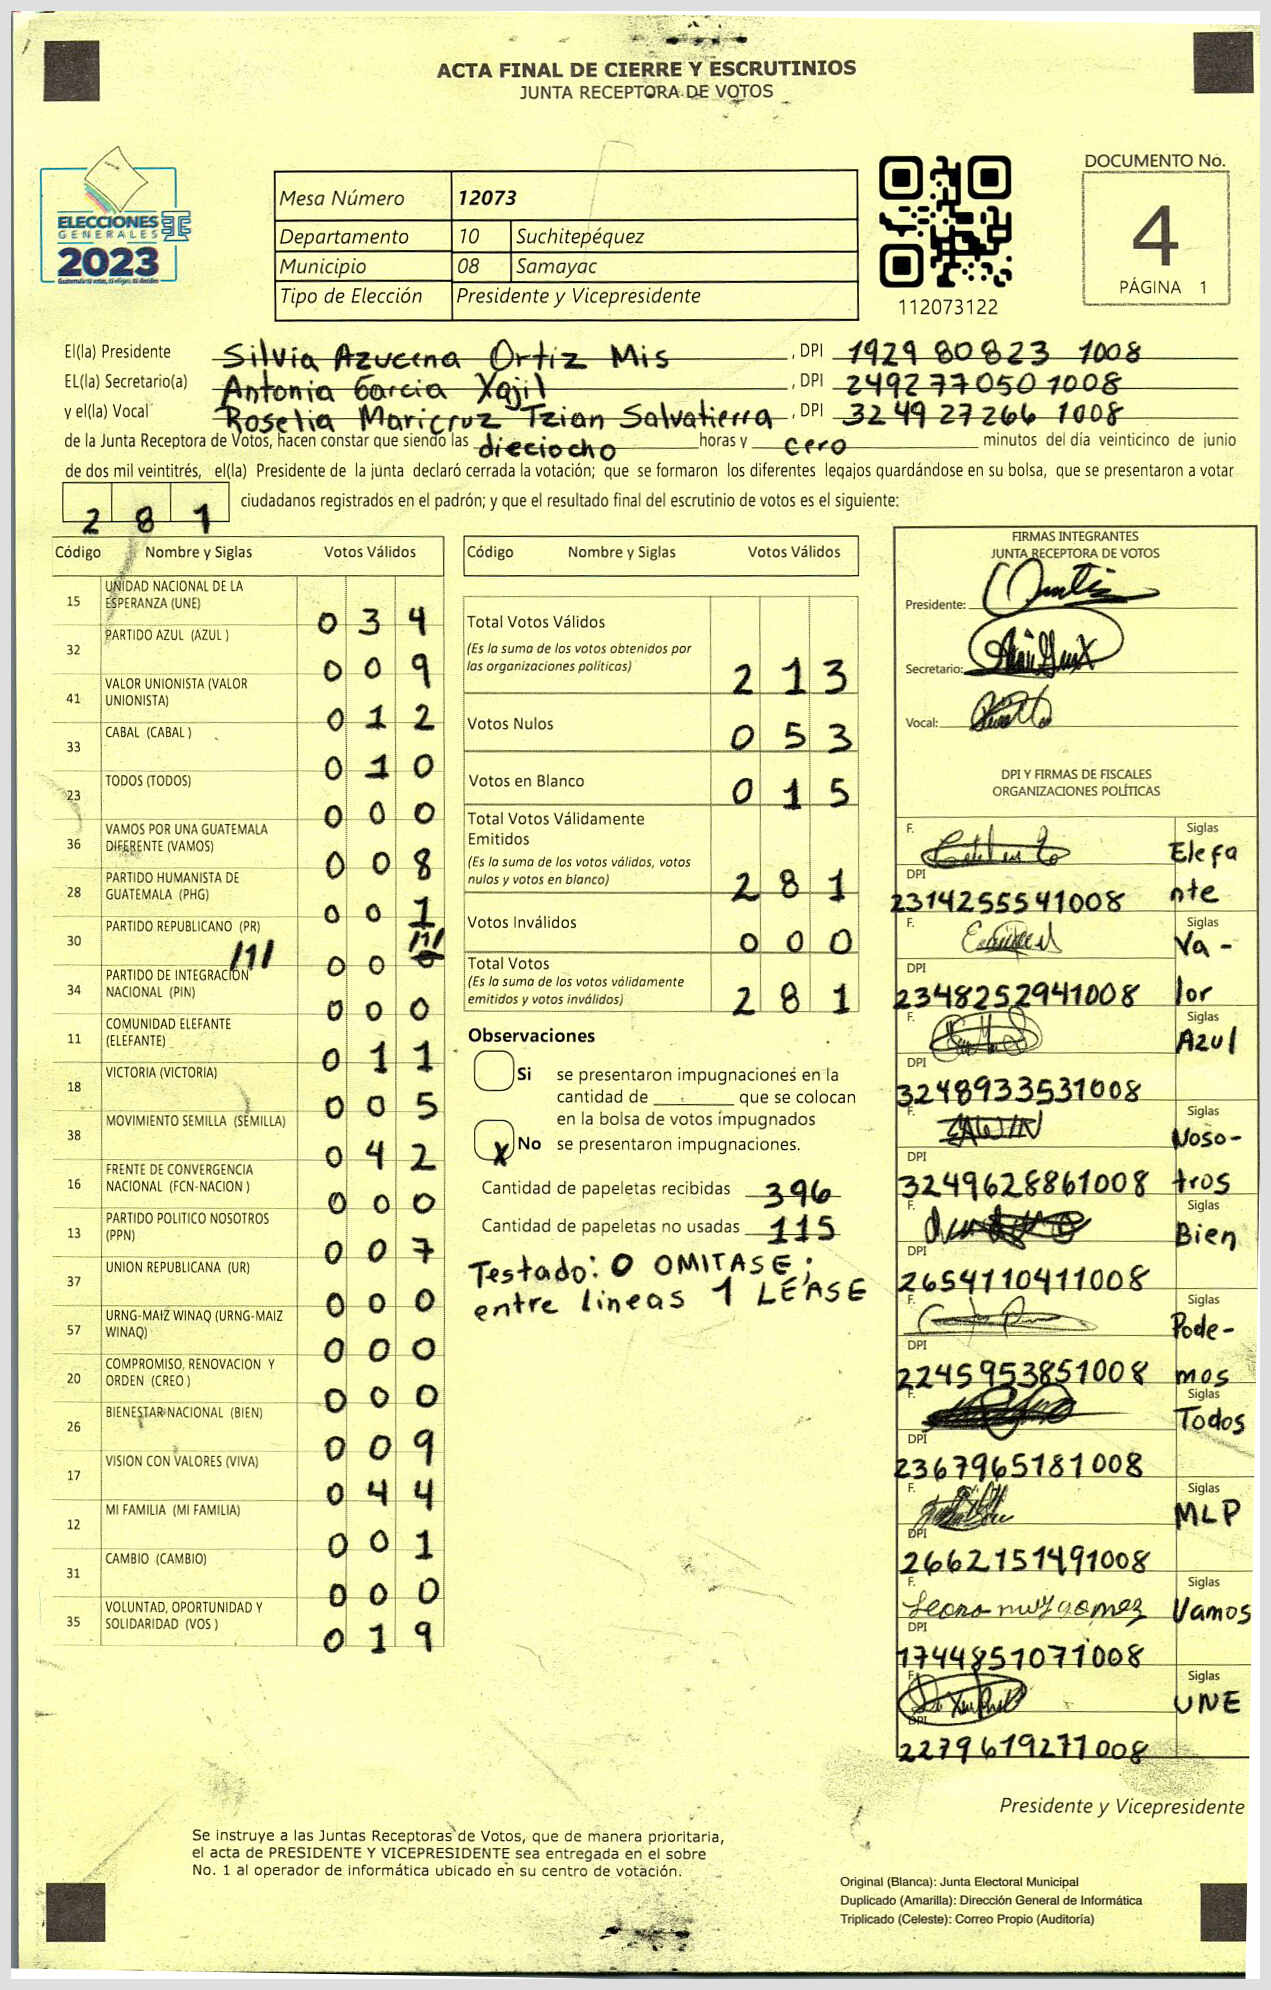 ACTA FINAL DE CIERRE Y ESCRUTINIOS
JUNTA RECEPTORA DE VOTOS
ELECCIONES
GENERALES
2023
Mesa Número 12073
Departamento 10 Suchitepéquez
Municipio 08 Samayac
Tipo de Elección Presidente y Vicepresidente
112073122
DOCUMENTO No.
4
PÁGINA 1
El(la) Presidente Silvia Azucena Ortiz Mis , DPI 1929 80823 1008
EL(la) Secretario(a) Antonia Garcia Xajil , DPI 2492 77050 1008
y el(la) Vocal Roselia Maricruz Tzian Salvatierra , DPI 3249 27266 1008
de la Junta Receptora de Votos, hacen constar que siendo las dieciocho horas y cero minutos del día veinticinco de junio
de dos mil veintitrés, el(la) Presidente de la junta declaró cerrada la votación; que se formaron los diferentes legajos guardándose en su bolsa, que se presentaron a votar
281 ciudadanos registrados en el padrón; y que el resultado final del escrutinio de votos es el siguiente:
Código Nombre y Siglas Votos Válidos
15 UNIDAD NACIONAL DE LA
ESPERANZA (UNE) 0 3 4
32 PARTIDO AZUL (AZUL ) 0 0 9
41 VALOR UNIONISTA (VALOR
UNIONISTA) 0 1 2
33 CABAL (CABAL ) 0 1 0
23 TODOS (TODOS) 0 0 0
36 VAMOS POR UNA GUATEMALA
DIFERENTE (VAMOS) 0 0 8
28 PARTIDO HUMANISTA DE
GUATEMALA (PHG) 0 0 1
30 PARTIDO REPUBLICANO (PR) /1/ 0 0 0 /1/
34 PARTIDO DE INTEGRACIÓN
NACIONAL (PIN) 0 0 0
11 COMUNIDAD ELEFANTE
(ELEFANTE) 0 1 1
18 VICTORIA (VICTORIA) 0 0 5
38 MOVIMIENTO SEMILLA (SEMILLA) 0 4 2
16 FRENTE DE CONVERGENCIA
NACIONAL (FCN-NACION ) 0 0 0
13 PARTIDO POLITICO NOSOTROS
(PPN) 0 0 7
37 UNION REPUBLICANA (UR) 0 0 0
57 URNG-MAIZ WINAQ (URNG-MAIZ
WINAQ) 0 0 0
20 COMPROMISO, RENOVACION Y
ORDEN (CREO ) 0 0 0
26 BIENESTAR NACIONAL (BIEN) 0 0 9
17 VISION CON VALORES (VIVA) 0 4 4
12 MI FAMILIA (MI FAMILIA) 0 0 1
31 CAMBIO (CAMBIO) 0 0 0
35 VOLUNTAD, OPORTUNIDAD Y
SOLIDARIDAD (VOS ) 0 1 9
Código Nombre y Siglas Votos Válidos
Total Votos Válidos
(Es la suma de los votos obtenidos por
las organizaciones políticas) 2 1 3
Votos Nulos 0 5 3
Votos en Blanco 0 1 5
Total Votos Válidamente
Emitidos
(Es la suma de los votos válidos, votos
nulos y votos en blanco) 2 8 1
Votos Inválidos 0 0 0
Total Votos
(Es la suma de los votos válidamente
emitidos y votos inválidos) 2 8 1
Observaciones
Si se presentaron impugnaciones en la
cantidad de ________ que se colocan
en la bolsa de votos impugnados
X No se presentaron impugnaciones.
Cantidad de papeletas recibidas 396
Cantidad de papeletas no usadas 115
Testado: 0 OMITASE;
entre lineas 1 LEASE
FIRMAS INTEGRANTES
JUNTA RECEPTORA DE VOTOS
Presidente:
Secretario:
Vocal:
DPI Y FIRMAS DE FISCALES
ORGANIZACIONES POLÍTICAS
F. Siglas Elefa
DPI
2314255541008 nte
F. Siglas Va-
DPI
2348252941008 lor
F. Siglas Azul
DPI
3248933531008
F. Siglas Noso-
DPI
3249628861008 tros
F. Siglas Bien
DPI
2654110411008
F. Siglas Pode-
DPI
2245953851008 mos
F. Siglas Todos
DPI
2367965181008
F. Siglas MLP
DPI
2662151491008
F. Siglas Vamos
DPI
1744851071008
F. Siglas UNE
DPI
2279619271008
Presidente y Vicepresidente
Se instruye a las Juntas Receptoras de Votos, que de manera prioritaria,
el acta de PRESIDENTE Y VICEPRESIDENTE sea entregada en el sobre
No. 1 al operador de informática ubicado en su centro de votación.
Original (Blanca): Junta Electoral Municipal
Duplicado (Amarilla): Dirección General de Informática
Triplicado (Celeste): Correo Propio (Auditoría)